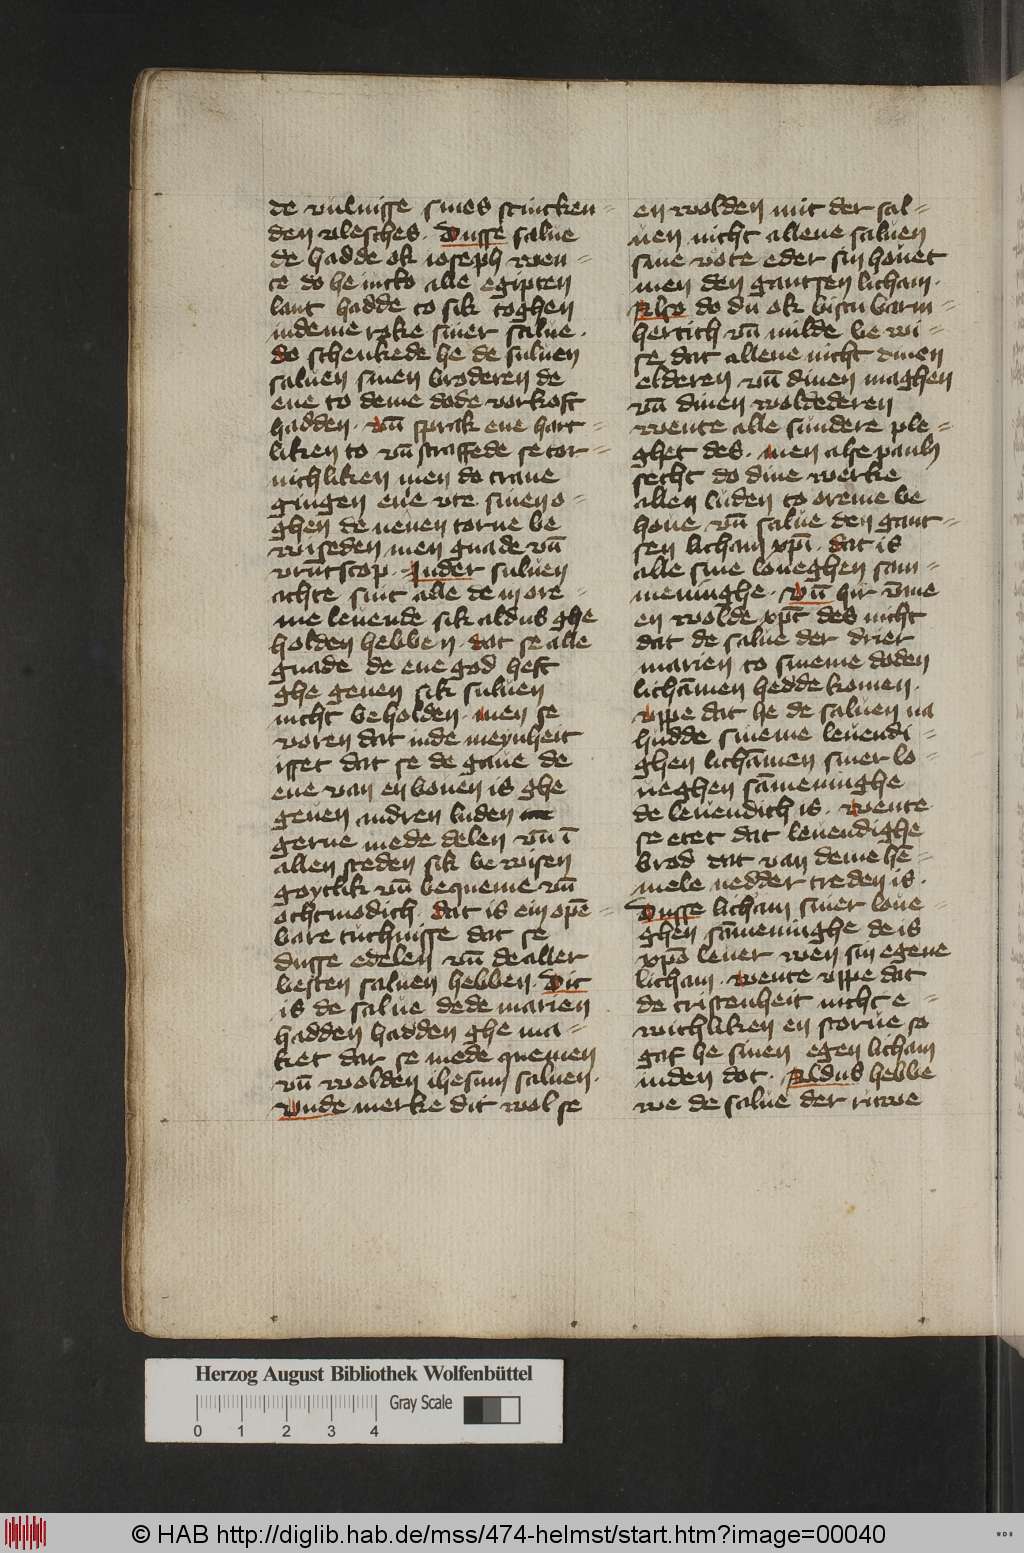 de vulnisse sines stincken=
den vlesches. Dusse salue
de hadde ok ioseph wen=
te do he in cko alle egipten
lant hadde to sik toghen
in deme roke siner salue.
do schenkede he de suluen
saluen sinen broderen de
ene to deme dode vorkoft
hadden. vn̄ sprak ene hart=
liken to vn̄ straffede se tor=
nichliken men do trane
gingen ene vte sinen o=
ghen de neuen torne be
wiseden men gnade vn̄
vruntscop. Inder suluen
achte sint alle de in ore=
me leuende sik aldus ghe
holden hebben. dat se alle
gnade de ene god heft
ghe geuen sik suluen
nicht beholden. men se
voren dat in de meynheit
isset dat se de gaue de
ene van en bouen is ghe
geuen andren luden
gerne mede delen vn̄ ī
allen steden sik be wisen
goytlik vn̄ bequeme vn̄
othmodich. dat is ein opē=
bare tuchnisse dat se
dusse edelen vn̄ de aller
besten saluen hebben. Dit
is de salue de de marien
hadden hadden ghe ma=
ket dar se mede quemen
vn̄ wolden ihesum saluen.
Vnde merke dit wol se
en wolden mit der sal=
uen nicht allene saluen
sine vote eder sin houet
men den gantsen licham.
Also do du ok bistu barm=
hertich vn̄ milde be wi=
se dat allene nicht dinen
elderen vn̄ dinen maghen
vn̄ dinen woldederen
wente alle sundere ple=
ghet des. men alse pauls
secht do dine werke
allen luden to oreme be
houe vn̄ salue den gant=
sen licham xpī. dat is
alle sine loueghen sam=
meninghe. Vn̄ hir v̄me
en wolde xpc̄ des nicht
dat de salue der drier
marien to sineme doden
lichāmen hedde komen.
vppe dat he de saluen na
hudde sineme leuendi=
ghen lichāmen siner lo=
ueghen sāmeninghe
de leuendich is. wente
se etet dat leuendighe
brod dat van deme hē=
mele nedder treden is.
Dusse licham siner loue=
ghen sāmeninghe de is
xpō leuer wen sin egene
licham. wente vppe dat
de cristenheit nicht e=
wichliken en storue so
gaf he sinen egen licham
in den dot. Aldus hebbe
we de salue der ruwe
Herzog August Bibliothek Wolfenbüttel
Gray Scale
0 1 2 3 4
© HAB http://diglib.hab.de/mss/474-helmst/start.htm?image=00040